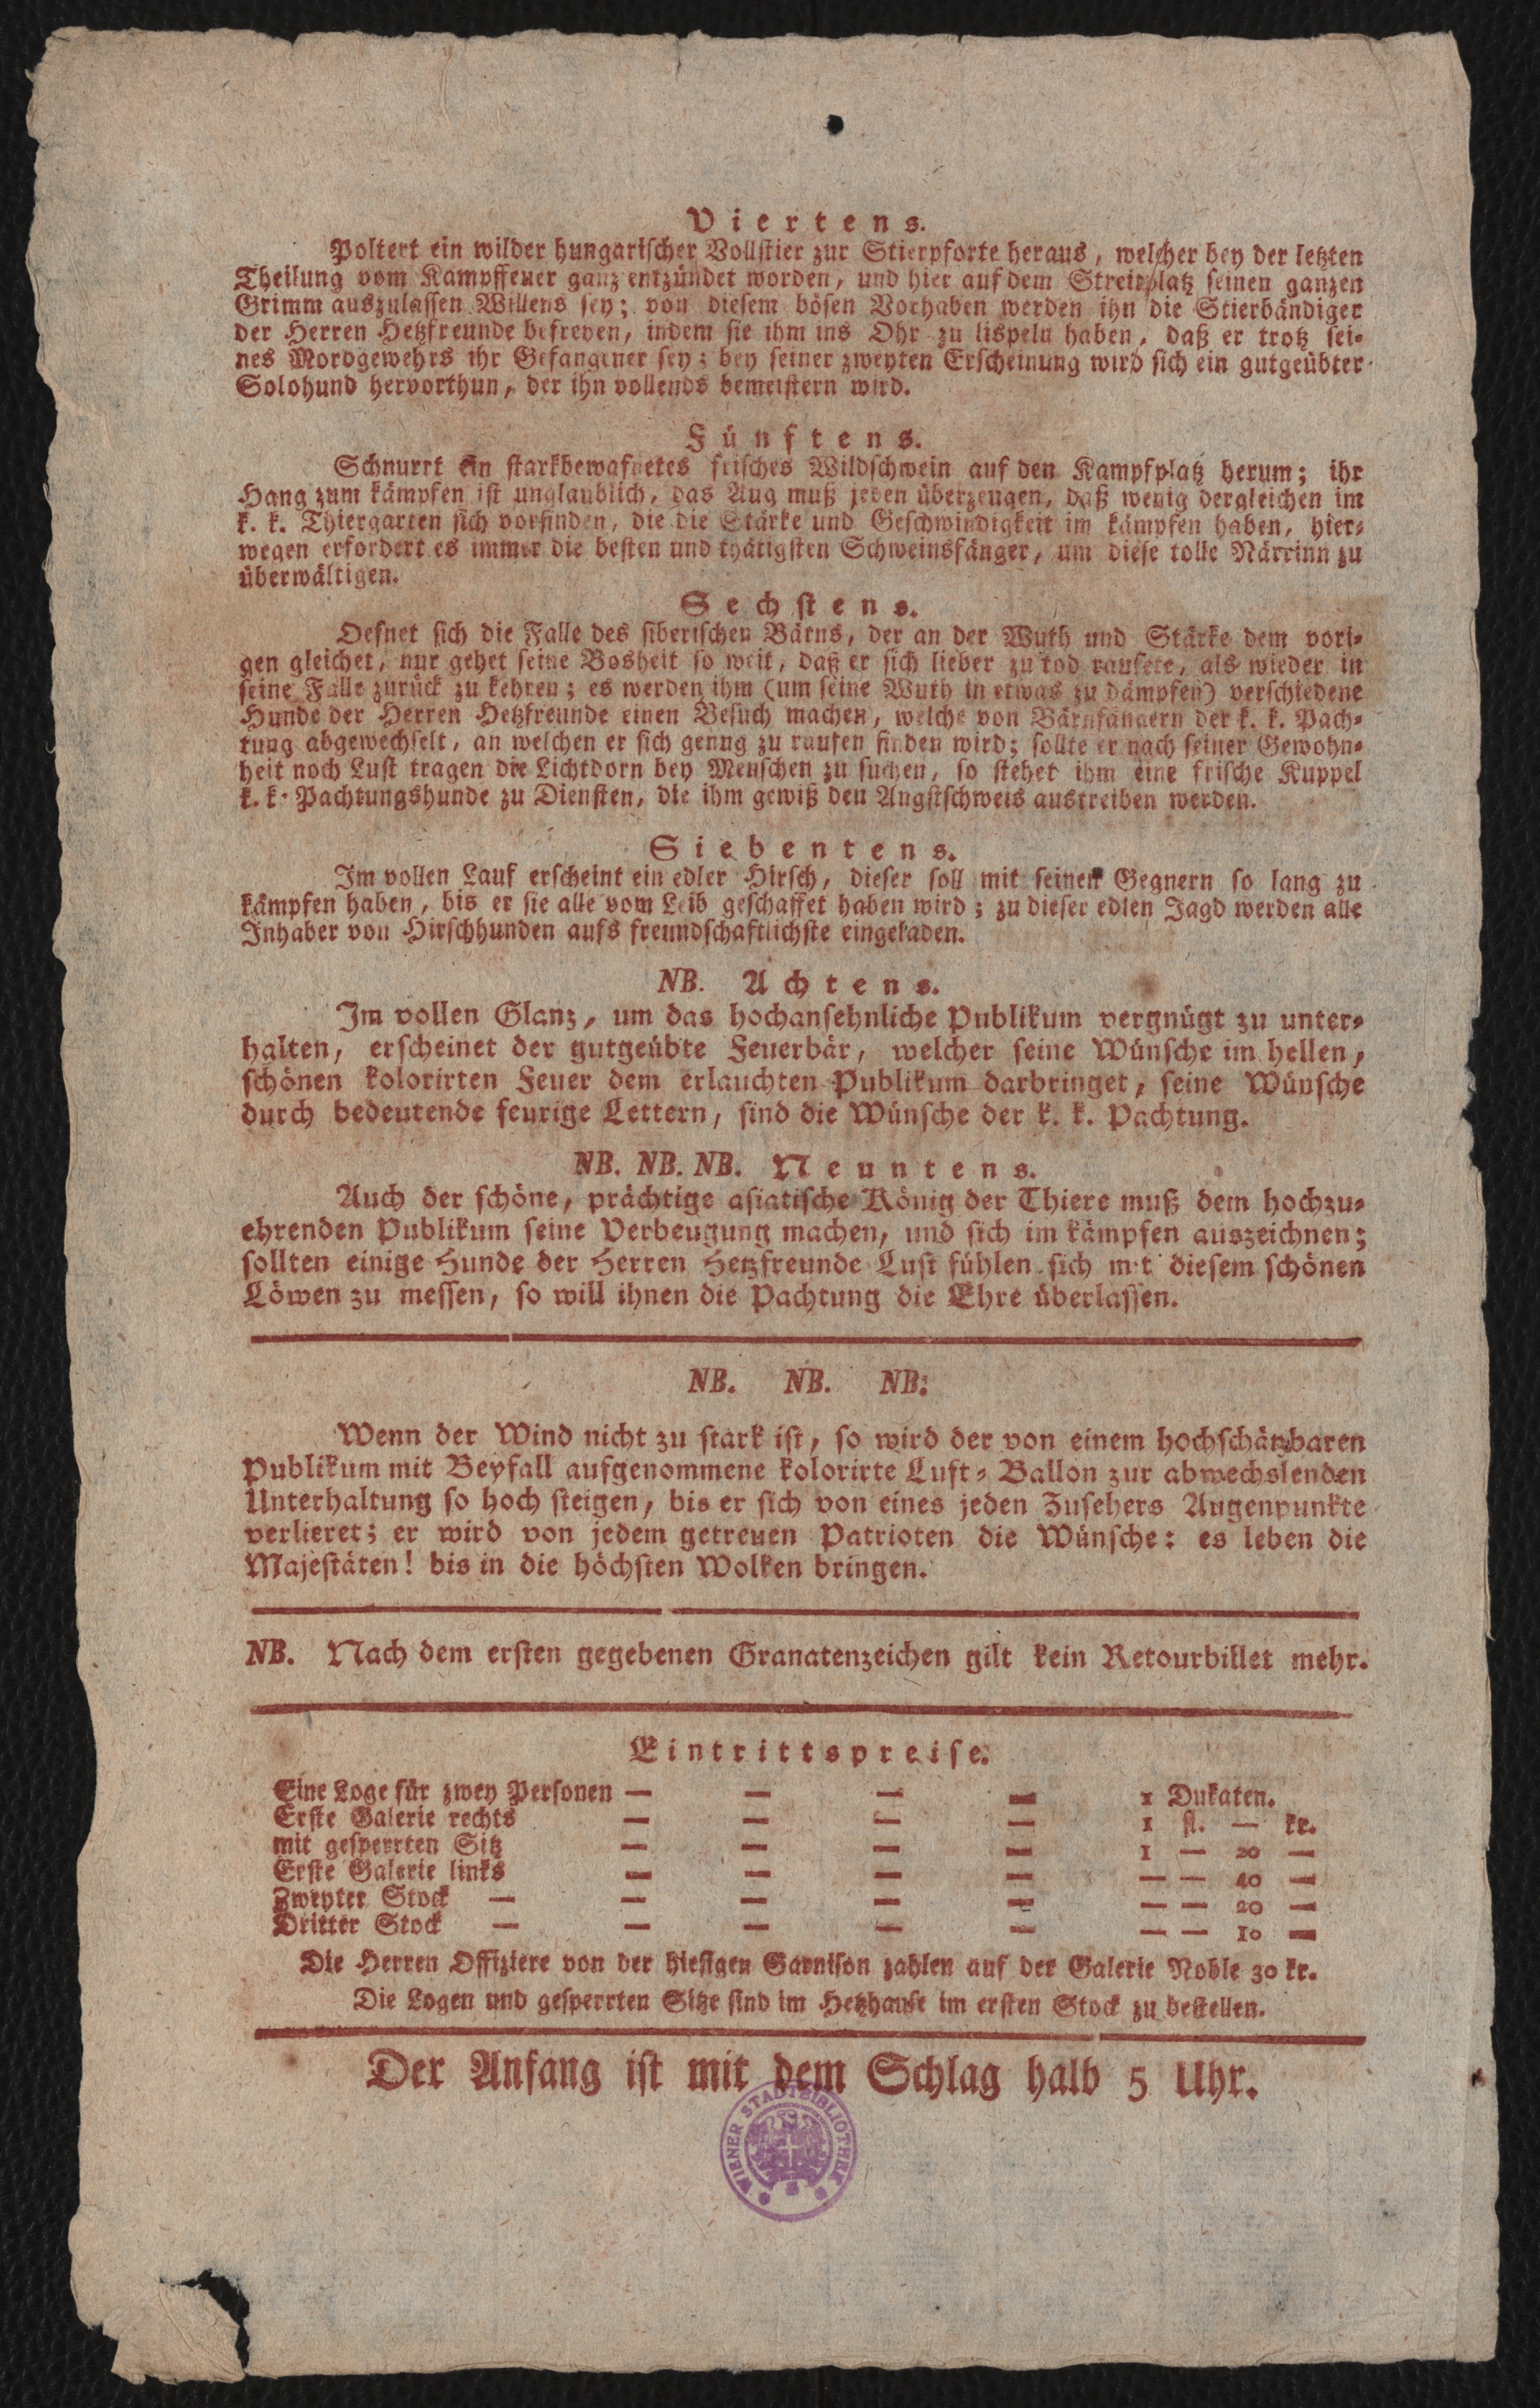 Viertens.
Poltert ein wilder hungarischer Vollstier zur Stierpforte heraus, welcher bey der letzten
Theilung vom Kampffeuer ganz entzündet worden, und hier auf dem Streitplatz seinen ganzen
Grimm auszulassen Willens sey; von diesem bösen Vorhaben werden ihn die Stierbändiger
der Herren Hetzfreunde befreyen, indem sie ihm ins Ohr zu lispeln haben, daß er trotz sei-
nes Mordgewehrs ihr Gefangener sey; bey seiner zweyten Erscheinung wird sich ein gutgeübter
Solohund hervorthun, der ihn vollends bemeistern wird.
Fünftens.
Schnurrt ein starkbewafnetes frisches Wildschwein auf den Kampfplatz herum; ihr
Hang zum kämpfen ist unglaublich, das Aug muß jeden überzeugen, daß wenig dergleichen im
k. k. Thiergarten sich vorfinden, die die Stärke und Geschwindigkeit im kämpfen haben, hier-
wegen erfordert es immer die besten und thätigsten Schweinsfänger, um diese tolle Närrinn zu
überwältigen.
Sechstens.
Oefnet sich die Falle des siberischen Bärns, der an der Wuth und Stärke dem vori-
gen gleichet, nur gehet seine Bosheit so weit, daß er sich lieber zu tod raufete, als wieder in
seine Falle zurück zu kehren; es werden ihm (um seine Wuth in etwas zu dämpfen) verschiedene
Hunde der Herren Hetzfreunde einen Besuch machen, welche von Bärnfängern der k. k. Pach-
tung abgewechselt, an welchen er sich genug zu raufen finden wird; sollte er nach seiner Gewohn-
heit noch Lust tragen die Lichtdorn bey Menschen zu suchen, so stehet ihm eine frische Kuppel
k. k. Pachtungshunde zu Diensten, die ihm gewiß den Angstschweis austreiben werden.
Siebentens.
Im vollen Lauf erscheint ein edler Hirsch, dieser soll mit seinen Gegnern so lang zu
kämpfen haben, bis er sie alle vom Leib geschaffet haben wird; zu dieser edlen Jagd werden alle
Inhaber von Hirschhunden aufs freundschaftlichste eingeladen.
NB. Achtens.
Im vollen Glanz, um das hochansehnliche Publikum vergnügt zu unter-
halten, erscheinet der gutgeübte Feuerbär, welcher seine Wünsche im hellen,
schönen kolorirten Feuer dem erlauchten Publikum darbringet, seine Wünsche
durch bedeutende feurige Lettern, sind die Wünsche der k. k. Pachtung.
NB. NB. NB. Neuntens.
Auch der schöne, prächtige asiatische König der Thiere muß dem hochzu-
ehrenden Publikum seine Verbeugung machen, und sich im kämpfen auszeichnen;
sollten einige Hunde der Herren Hetzfreunde Lust fühlen sich mit diesem schönen
Löwen zu messen, so will ihnen die Pachtung die Ehre überlassen.
NB. NB. NB:
Wenn der Wind nicht zu stark ist, so wird der von einem hochschätzbaren
Publikum mit Beyfall aufgenommene kolorirte Luft-Ballon zur abwechslenden
Unterhaltung so hoch steigen, bis er sich von eines jeden Zusehers Augenpunkte
verlieret; er wird von jedem getreuen Patrioten die Wünsche: es leben die
Majestäten! bis in die höchsten Wolken bringen.
NB. Nach dem ersten gegebenen Granatenzeichen gilt kein Retourbillet mehr.
Eintrittspreise.
Eine Loge für zwey Personen — — — — 1 Dukaten.
Erste Galerie rechts — — — — 1 fl. — kr.
mit gesperrten Sitz — — — — 1 — 20 —
Erste Galerie links — — — — — — 40 —
Zweyter Stock — — — — — — — 20 —
Dritter Stock — — — — — — — 10 —
Die Herren Offiziere von der hiesigen Garnison zahlen auf der Galerie Noble 30 kr.
Die Logen und gesperrten Sitze sind im Hetzhause im ersten Stock zu bestellen.
Der Anfang ist mit dem Schlag halb 5 Uhr.
WIENER STADTBIBLIOTHEK